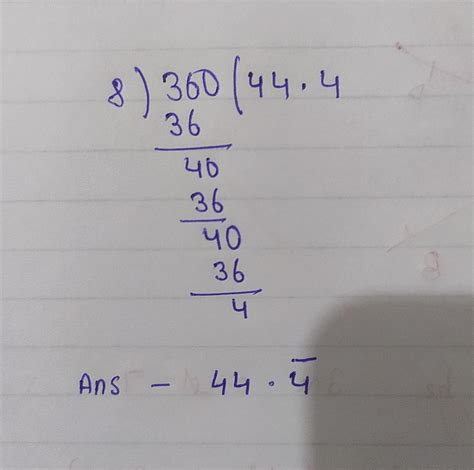 8 ) 360 ( 44.4
36
40
36
40
36
4
Ans - 44.4̅